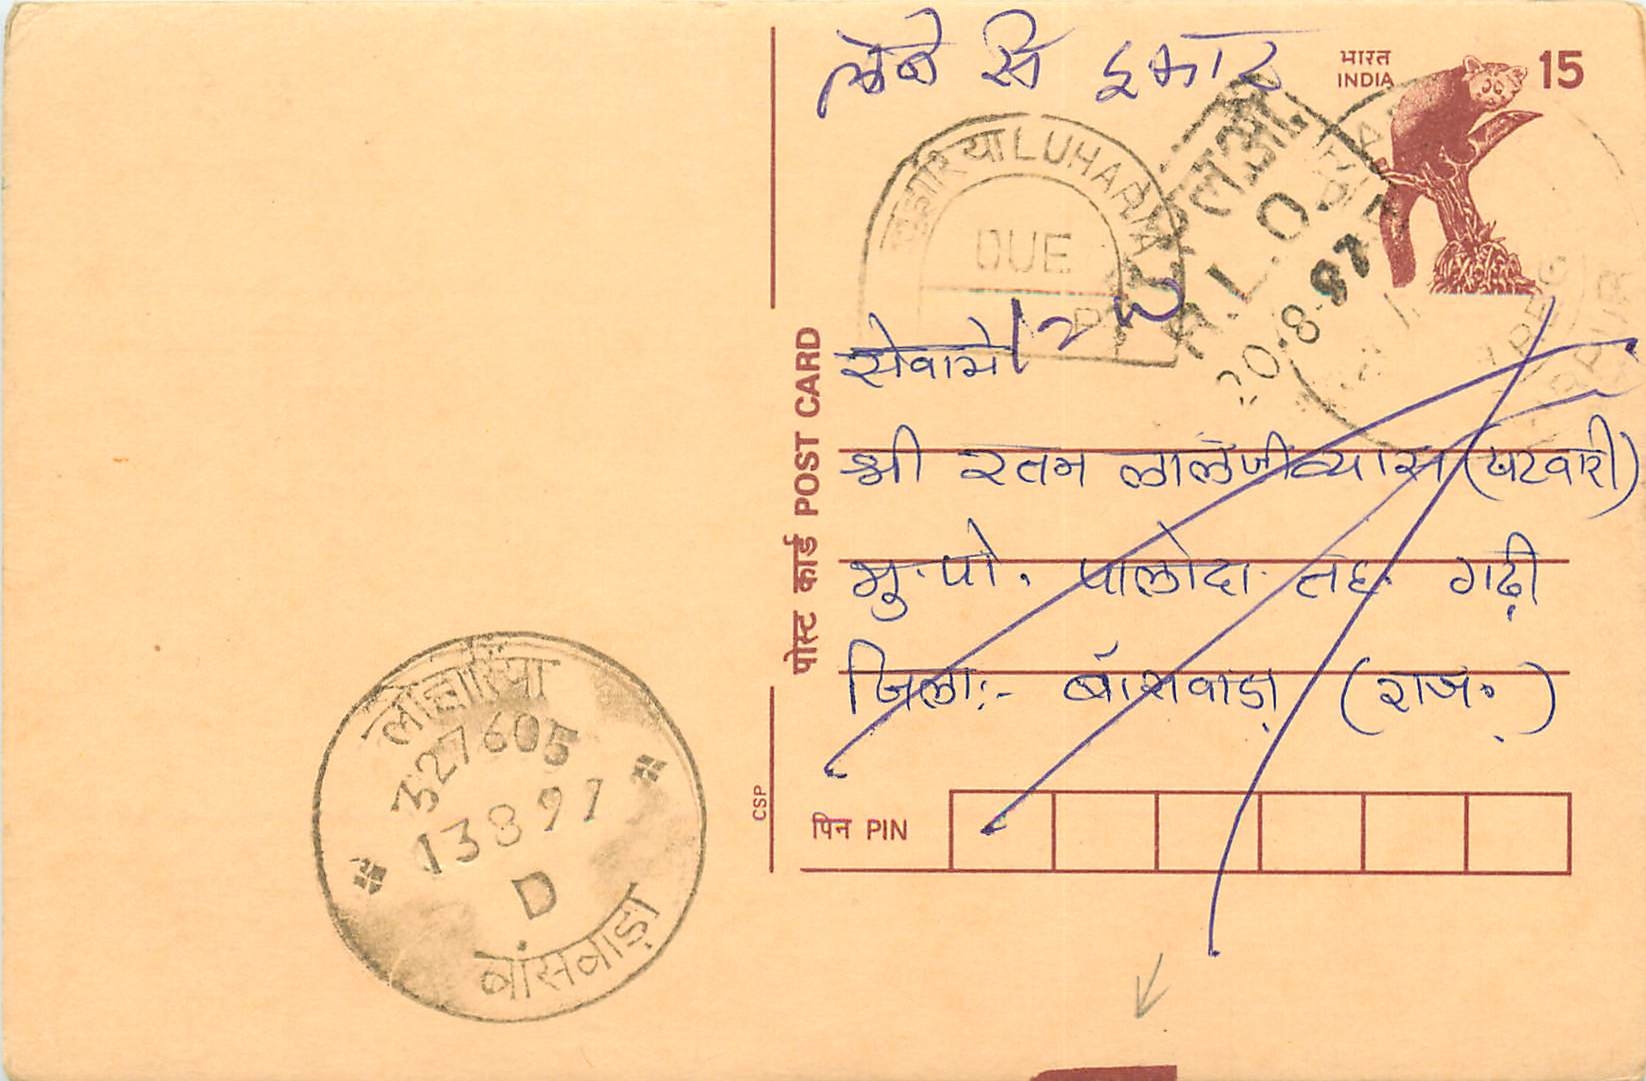 लेने से इन्कार
भारत
INDIA
15
लुहारिया LUHARIA
DUE
आर.एल.ओ.
R.L.O.
20.8.97
पोस्ट कार्ड POST CARD
सेवामे
श्री रतन लालजी व्यास (पटवारी)
मु. पो. पालोदा तह. गढ़ी
जिला:- बांसवाड़ा (राज.)
CSP
पिन PIN
लोहारिया
327605
13897
D
बांसवाड़ा